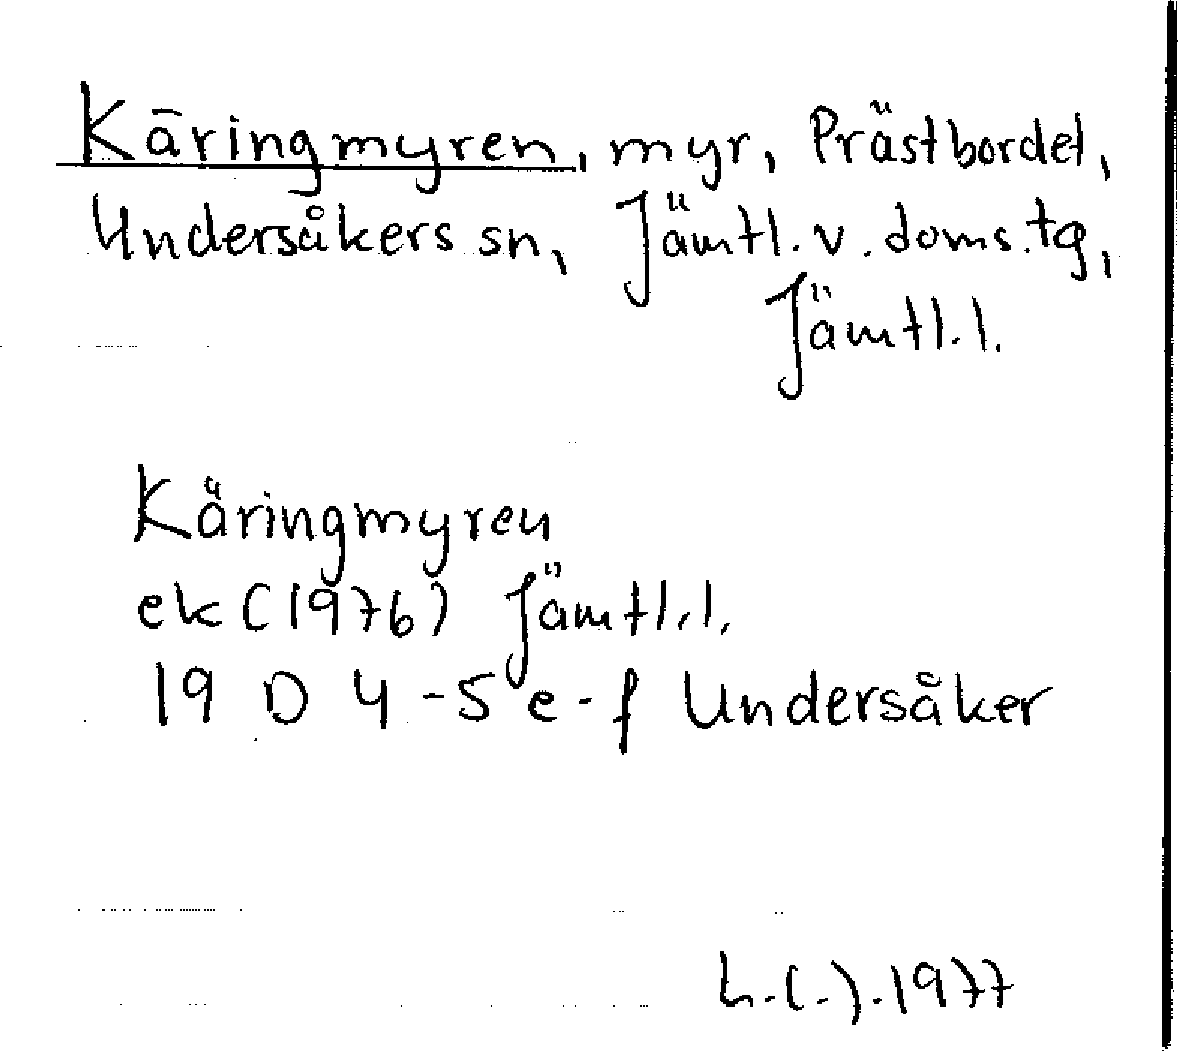 Käringmyren, myr, Prästbordet,
Undersåkers sn, Jämtl. v. doms. tg,
Jämtl. l.
Käringmyren
ek (1976) Jämtl. l.
19 D 4-5 e-f Undersåker
h.(-).1977